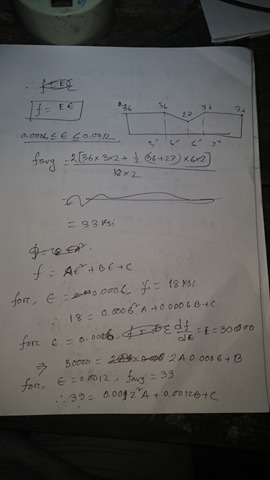 f = Eϵ
36 36 36 36
27
3" 6" 6" 3"
0.0006 ≤ ϵ ≤ 0.0012
favg = 2[36×3×2 + 1/2 (36+27) × 6×2] / 18×2
= 33 ksi
f = Aϵ² + Bϵ + C
for, ϵ = 0.0006, f = 18 ksi
18 = 0.0006² A + 0.0006 B + C
for ϵ = 0.0006, df/dϵ = E = 30000
⇒ 30000 = 2A 0.0006 + B
for, ϵ = 0.0012, favg = 33
∴ 33 = 0.0012² A + 0.0012 B + C